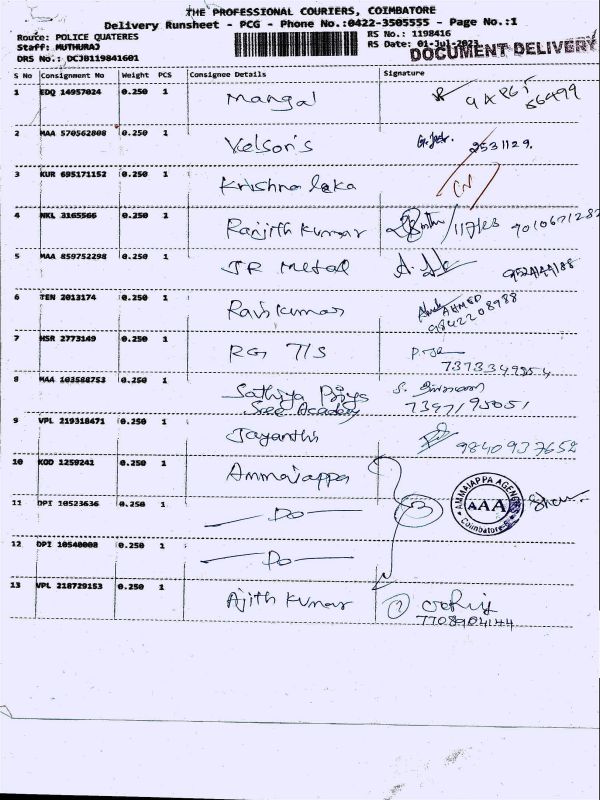 THE PROFESSIONAL COURIERS, COIMBATORE
Delivery Runsheet - PCG - Phone No.:0422-3505555 - Page No.:1
Route: POLICE QUATERES
RS No.: 1198416
Staff: MUTHURAJ
RS Date: 01-Jul-2023
DOCUMENT DELIVERY
DRS No.: DCJB119841601
S No Consignment No Weight PCS Consignee Details Signature
1 EDQ 14957024 0.250 1 Mangal
2 MAA 570562808 0.250 1 Velson's 2531129.
3 KUR 695171152 0.250 1 Krishna leka
4 NKL 3165566 0.250 1 Ranjith Kumar
5 MAA 859752298 0.250 1 JR Metal
6 TEN 2013174 0.250 1 Ravikumar AHMED
9842208988
7 HSR 2773149 0.250 1 RG T/S
8 MAA 103588753 0.250 1 Sathiya Priya
Sree Academy 7397195051
9 VPL 219318471 0.250 1 Jayanthi 9840937652
10 KOD 1259241 0.250 1 Ammaiappa
AMMAIAPPA AGENCIES
AAA
Coimbatore
11 DPI 10523636 0.250 1 Do
12 DPI 10540008 0.250 1 Do
13 VPL 218729153 0.250 1 Ajith Kumar
7708904144